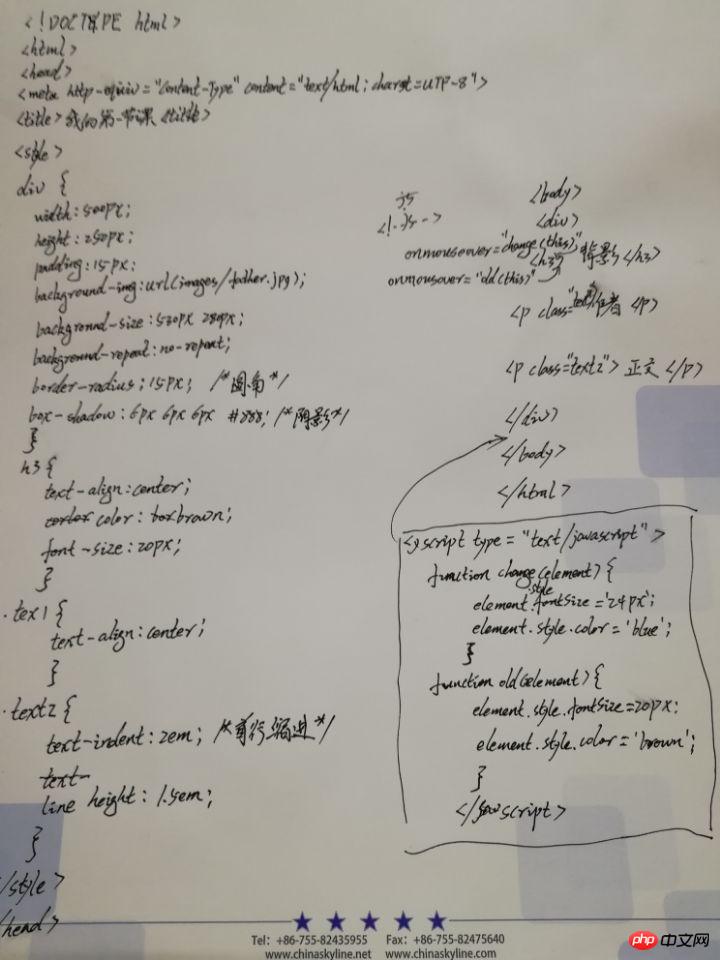 <!DOCTYPE html>
<html>
<head>
<meta http-equiv="Content-Type" content="text/html; charset=UTF-8">
<title>我的第一节课<title>
<style>
div {
width:500px;
height:250px;
padding:15px;
background-img:url(images/father.jpg);
background-size:530px 280px;
background-repeat:no-repeat;
border-radius:15px; /*圆角*/
box-shadow:6px 6px 6px #888; /*阴影*/
}
h3{
text-align:center;
color:brown;
font-size:20px;
}
.tex1{
text-align:center;
}
.text2{
text-indent:2em; /*首行缩进*/
text-
line height:1.5em;
}
/style>
/head>
js
<!-js->
<body>
<div>
onmouseover="change(this)"
<h3>背影</h3>
onmouseover="old(this)"
<p class="text1">作者</p>
<p class="text2">正文</p>
</div>
</body>
</html>
<script type="text/javascript">
function change(element){
element.style.fontSize='24px';
element.style.color='blue';
}
function old(element){
element.style.fontSize=20px;
element.style.color='brown';
}
</script>
Tel: +86-755-82435955 Fax: +86-755-82475640
www.chinaskyline.net www.chinaskyline.com
php 中文网